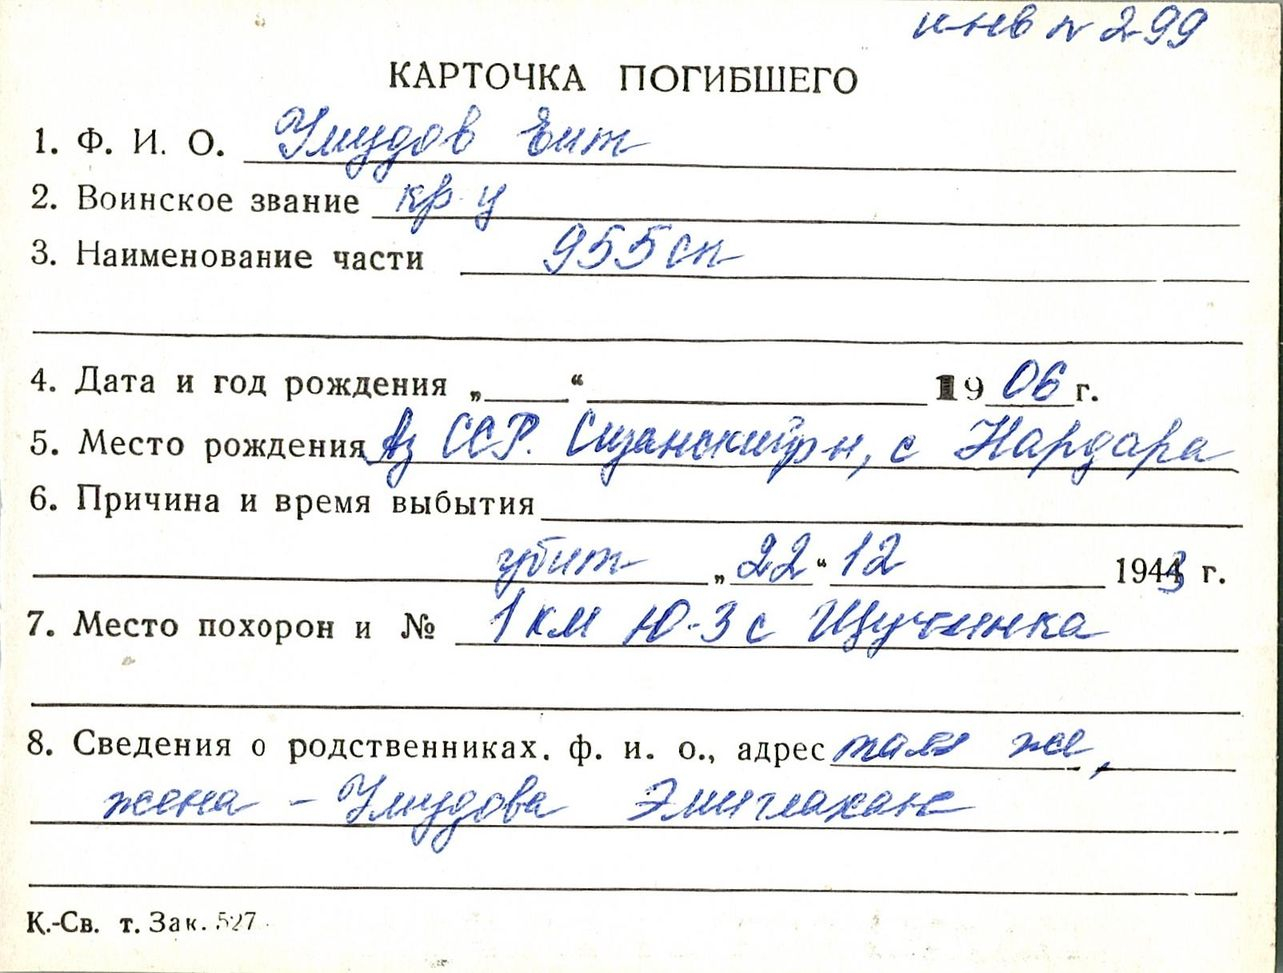 инв № 299
КАРТОЧКА ПОГИБШЕГО
1. Ф. И. О. Умудов Еит
2. Воинское звание кр-ц
3. Наименование части 955 сп
4. Дата и год рождения „ “ 1906 г.
5. Место рождения Аз ССР. Сизанский рн, с Нардара
6. Причина и время выбытия
убит „22“ 12 1943 г.
7. Место похорон и № 1 км Ю-З с Щучинка
8. Сведения о родственниках. ф. и. о., адрес там же,
жена - Умудова
К.-Св. т. Зак. 527